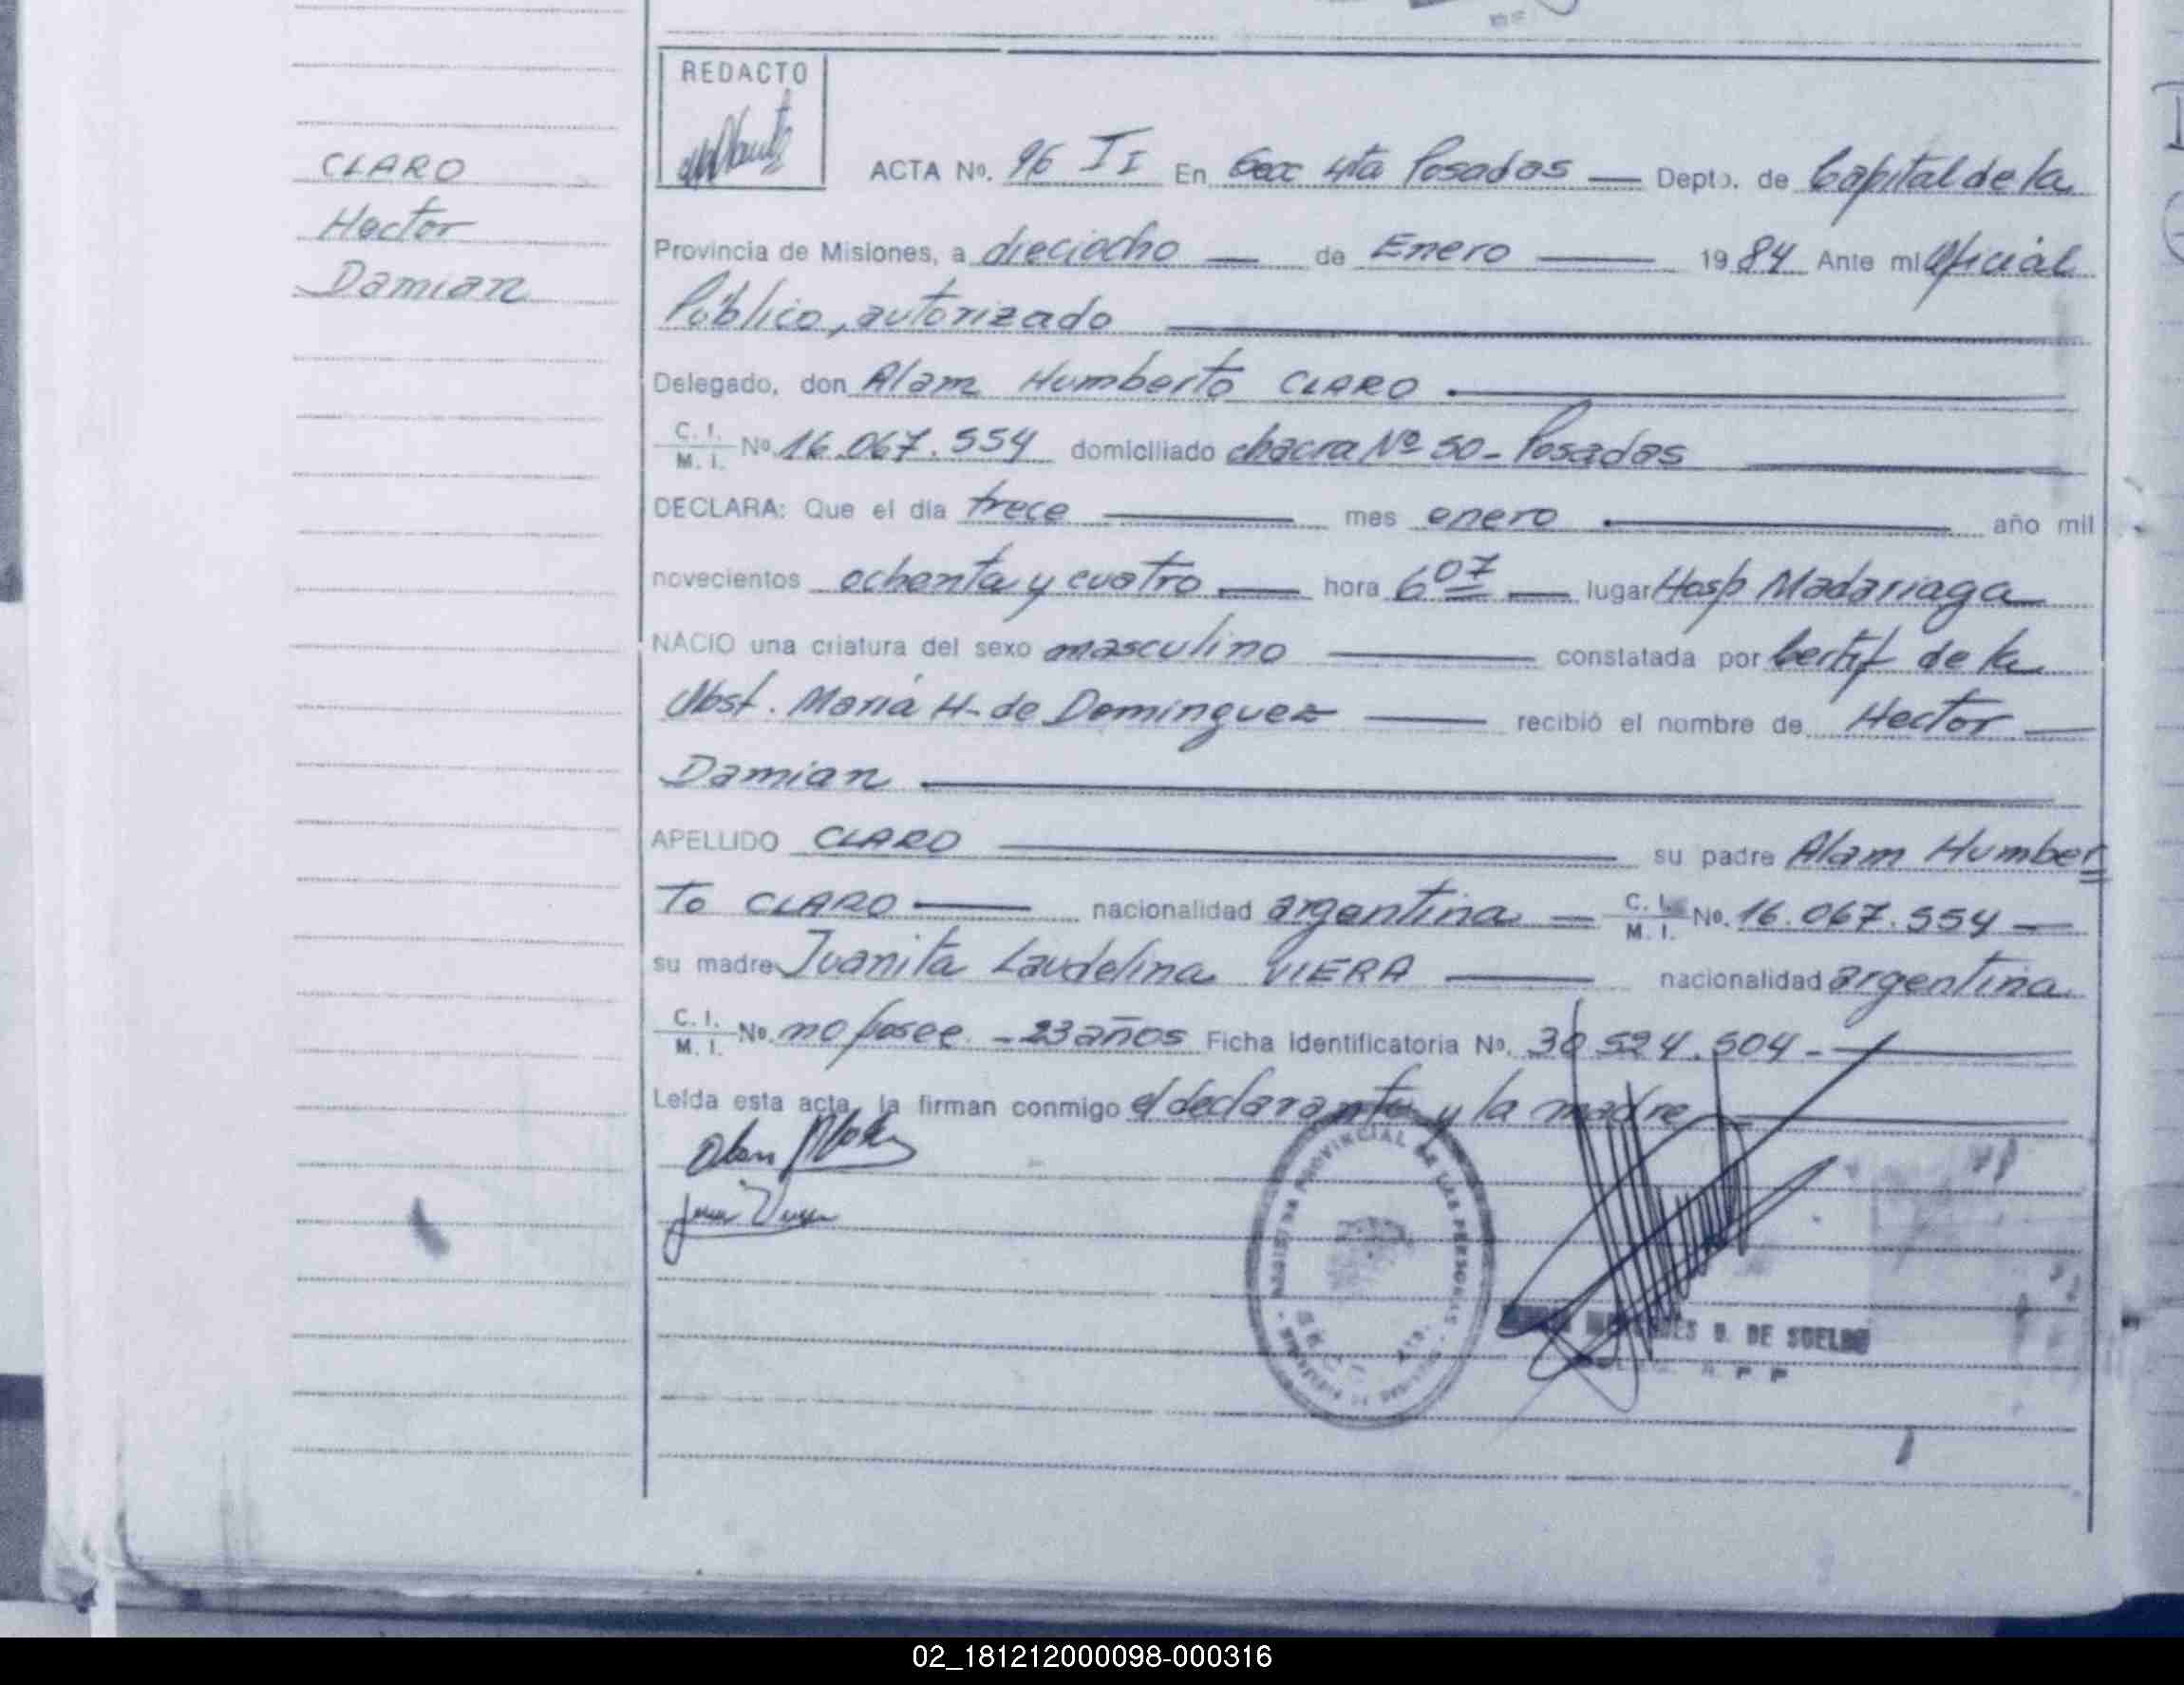 CLARO
Hector
Damian
REDACTO
ACTA Nº. 96 II En Secc 4ta Posadas — Depto. de Capital de la
Provincia de Misiones, a dieciocho — de Enero — 1984 Ante mi Oficial
Público, autorizado
Delegado, don Alam Humberto CLARO.
C. I. M. I. Nº 16.067.554 domiciliado chacra Nº 50 - Posadas
DECLARA: Que el día trece — mes enero — año mil
novecientos ochenta y cuatro — hora 6 07 — lugar Hosp Madariaga
NACIO una criatura del sexo masculino — constatada por Certif de la
Obst. Maria H. de Dominguez — recibió el nombre de Hector —
Damian
APELLIDO CLARO — su padre Alam Humber
To CLARO — nacionalidad argentina = C. I. M. I. Nº. 16.067.554 —
su madre Juanita Laudelina VIERA — nacionalidad argentina
C. I. M. I. Nº. no posee - 23 años Ficha Identificatoria Nº. 30.524.504 -
Leída esta acta, la firman conmigo el declarante y la madre
PROVINCIAL DE LAS PERSONAS
DE SUELDO
02_181212000098-000316